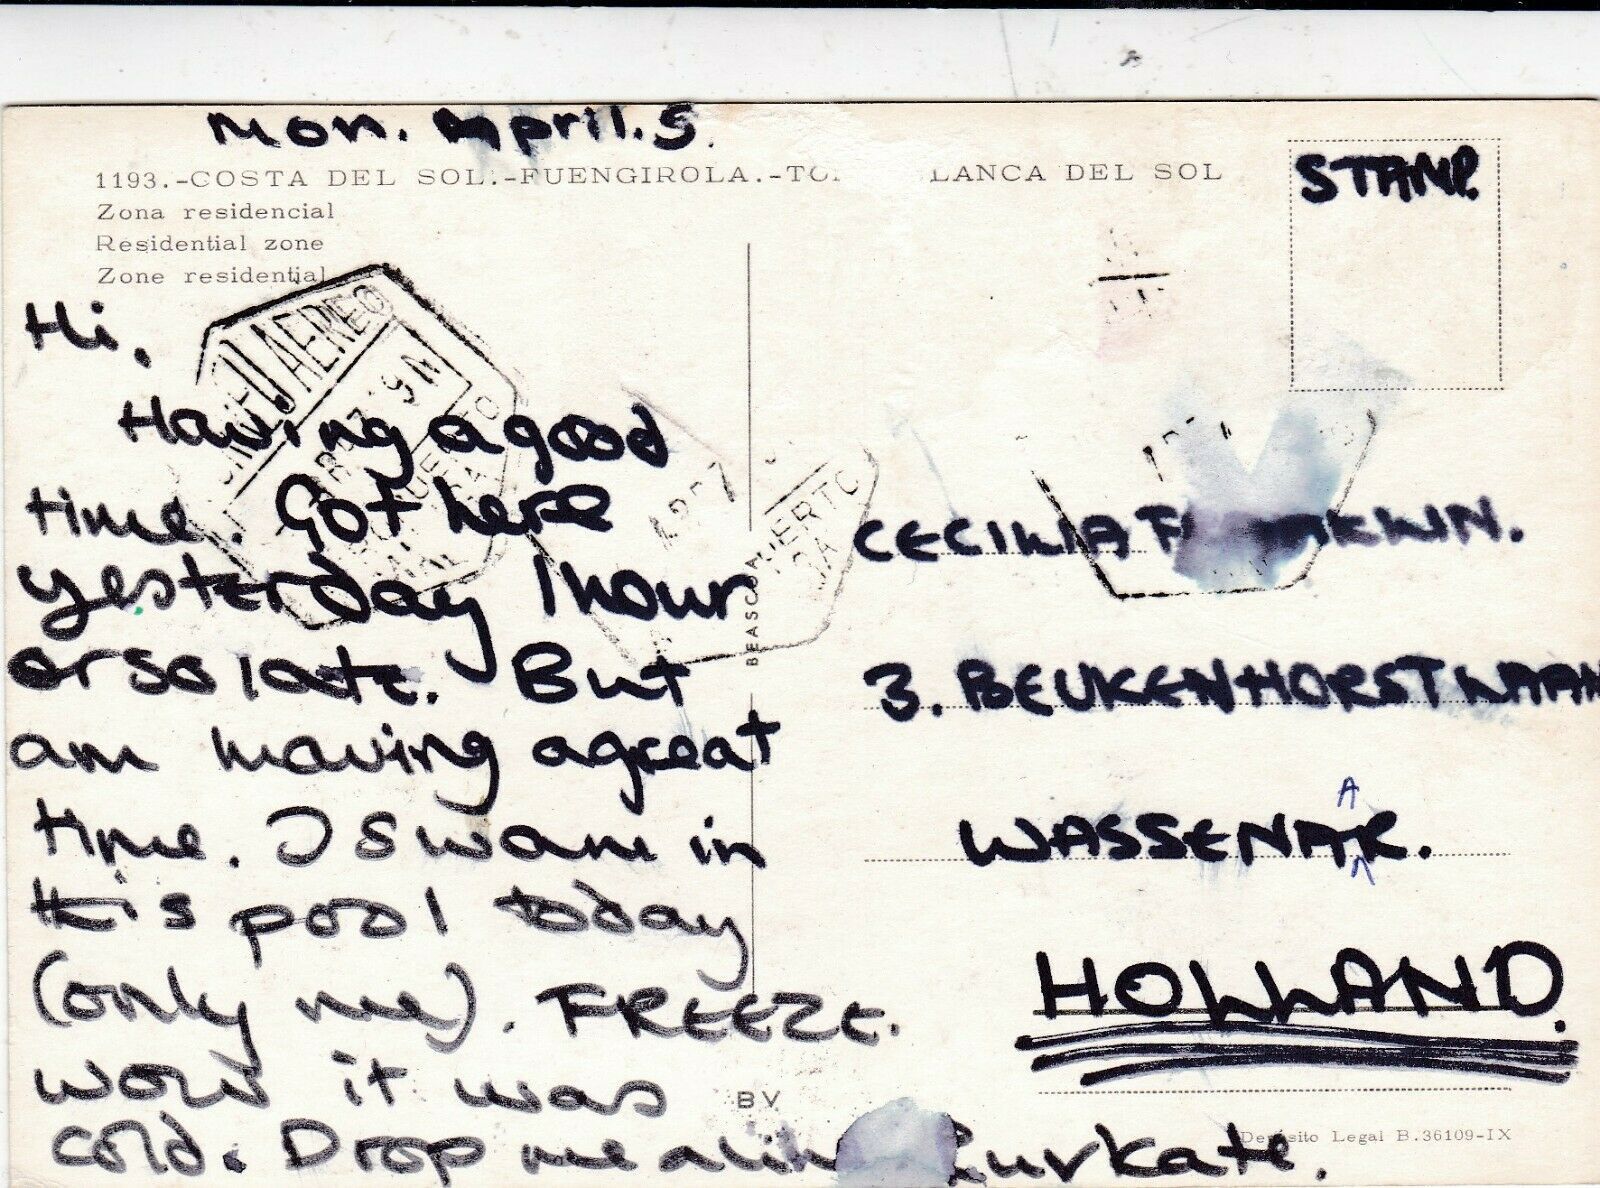 Mon. April. 5.
1193.-COSTA DEL SOL.-FUENGIROLA.- LANCA DEL SOL
Zona residencial
Residential zone
Zone residential
STAMP.
Hi,
Having a good
time. Got here
yesterday 1 hour
or so late. But
am having a great
time. I swam in
this pool today
(only me). FREEZE.
wow it was
cold. Drop me a Luv Kate.
AEREO
PUERTO
BEASCOA
BV
CECILIA .
3. BEUKENHORSTLAAN
WASSENAAR.
HOLLAND.
Depósito Legal B.36109-IX